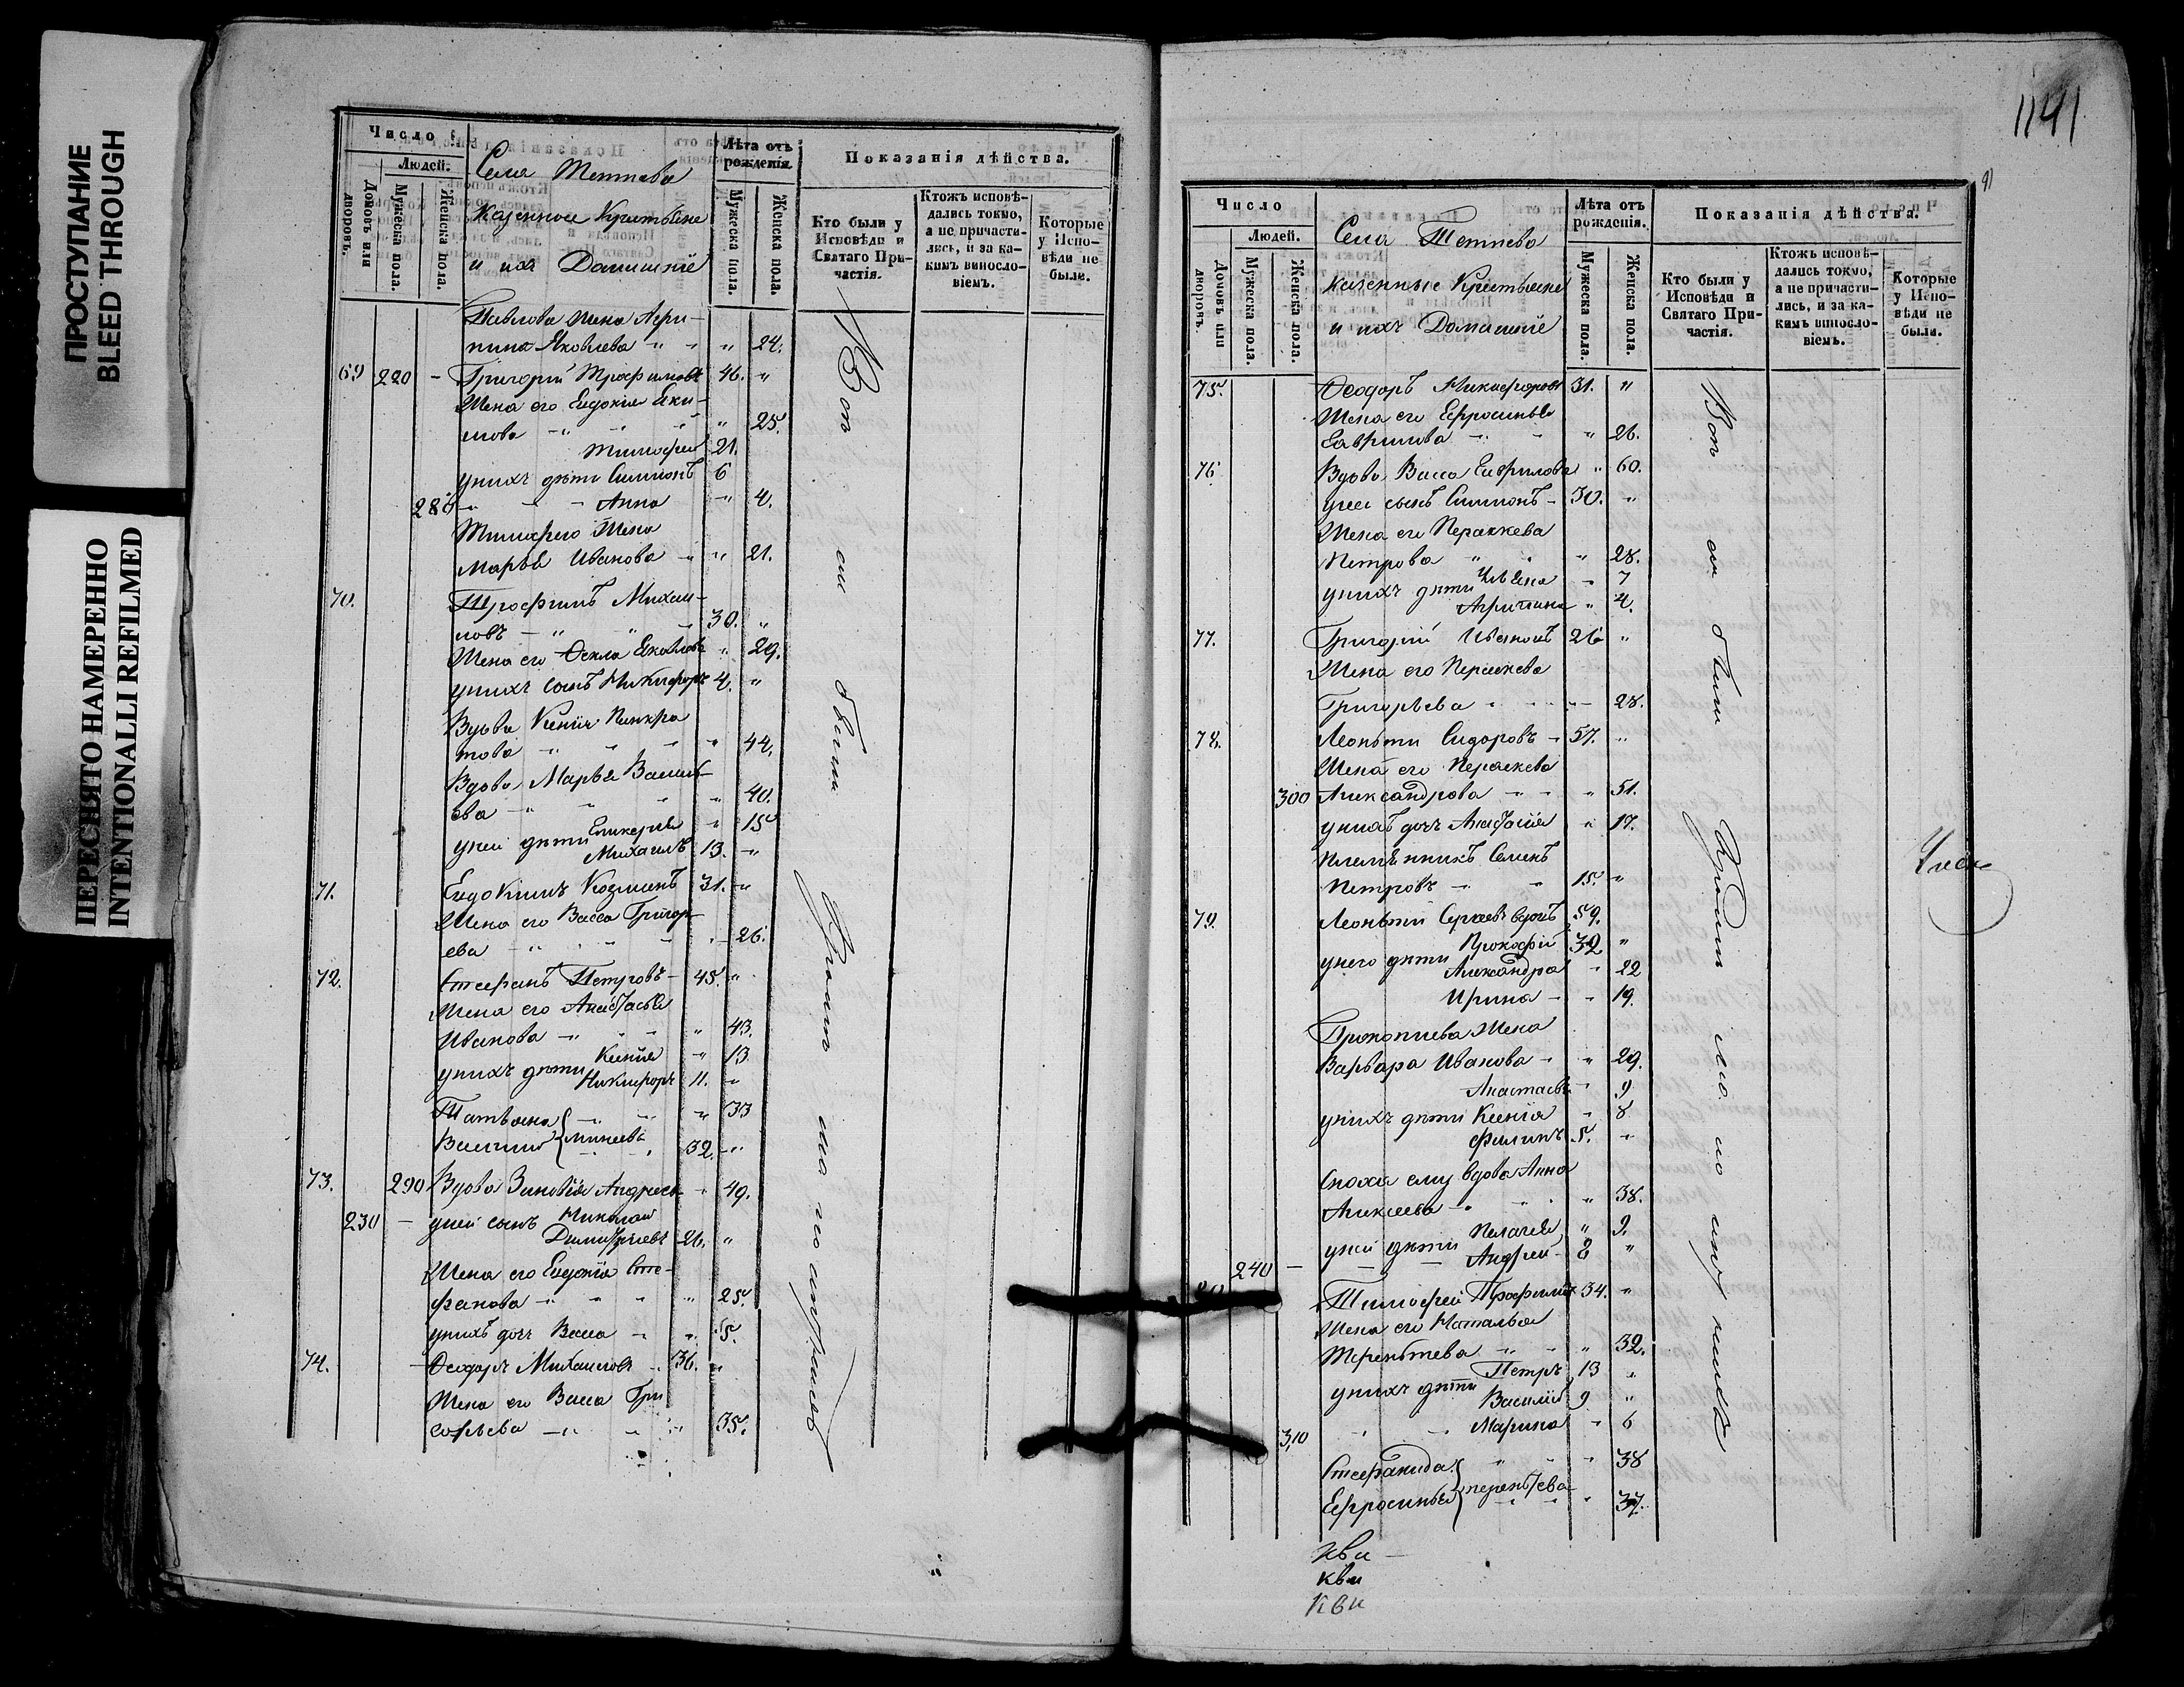 ПРОСТУПАНИЕ
BLEED THROUGH
ПЕРЕСНЯТО НАМЕРЕННО
INTENTIONALLI REFILMED
Число
Людей.
Домовъ или дворовъ.
Мужеска пола.
Женска пола.
Села Тетнева
казенные Крестьяне
и ихъ Домашніе
Лѣта отъ рожденія.
Мужеска пола.
Женска пола.
Показанія дѣйства.
Кто были у Исповѣди и Святаго Причастія.
Ктожъ исповѣдались токмо, а не причастились, и за какимъ винословіемъ.
Которые у Исповѣди не были.
Павлова жена Агри-
пина Яковлева " " " 24.
69 220 - Григорій Трофимовъ 46. "
Жена его Евдокія Яки-
мова " " " " 25.
Тимофей 21.
у нихъ дѣти Симионъ 6
280 - - Анна " 4.
Тимофея Жена
Марья Иванова " " 21.
70. Трофимъ Михаи-
ловъ - " " 30. "
Жена его Ѳекла Яковлева " 29.
у нихъ сынъ Никифоръ 4. "
Вдова Ксенія Панкра
това " " " " 44.
Вдова Марья Василь-
ева - " " " " 40.
Гликерія " 15
у ней дѣти
Михаилъ 13. "
71. Евдокимъ Козминъ 31. "
Жена его Васса Григорь-
ева " " " " 26.
72. Стефанъ Петровъ - 45. "
Жена его Анастасья
Иванова - " " " 43.
Ксенія " 13
у нихъ дѣти
Никифоръ 11. "
Татьяна - " " 33
Василій Минеевы 32. "
73. 290 Вдова Зиновія Андреева " 49.
230 - у ней сынъ Николай
Димитріевъ 26. "
Жена его Евдокія Сте-
фанова " " " " 25.
у нихъ дочь Васса " " 5.
74. - Ѳеодоръ Михаиловъ 36. "
Жена его Васса Гри
горьева - " " " 35.
Вси были
1141
91
Число
Людей.
Домовъ или дворовъ.
Мужеска пола.
Женска пола.
Села Тетнева
казенные Крестьяне
и ихъ Домашніе
Лѣта отъ рожденія.
Мужеска пола.
Женска пола.
Показанія дѣйства.
Кто были у Исповѣди и Святаго Причастія.
Ктожъ исповѣдались токмо, а не причастились, и за какимъ винословіемъ.
Которые у Исповѣди не были.
75. Ѳеодоръ Никифоровъ 31. "
Жена его Ефросинья
Гаврилова " " " 26.
76. Вдова Васса Гаврилова " 60.
у нея сынъ Симионъ - 30. "
Жена его Параскева
Петрова " " " 28.
Ульяна " 7
у нихъ дѣти
Агрипина " 4.
77. Григорій Ивановъ 26 "
Жена его Параскева
Григорьева " " " 28.
78. Леонтій Сидоровъ - 57. "
Жена его Параскева
300 Александрова " " " 51.
у нихъ дочь Анастасія " 17.
племянникъ Семенъ
Петровъ - " 15. "
79. Леонтій Сергеевъ вдовъ 59.
Прокофій 32 "
у него дѣти
Александра " 22
Ирина - " 19.
Прокопіева Жена
Варвара Иванова - " 29.
Анастасья " 9
у нихъ дѣти Ксенія " 8
Филипъ 5. "
Сноха ему вдова Анна
Алексеева " " " 38.
Пелагея " 9.
у ней дѣти
240 - Андрей - 8 "
Тимофей Трофимовъ 34. "
Жена его Наталья
Терентьева " " " 32.
Петръ 13 "
у нихъ дѣти
Василій 9 "
310 " " Марина " 6
Стефанида " " 38
Ефросинья терентьева " 37.
Вси были